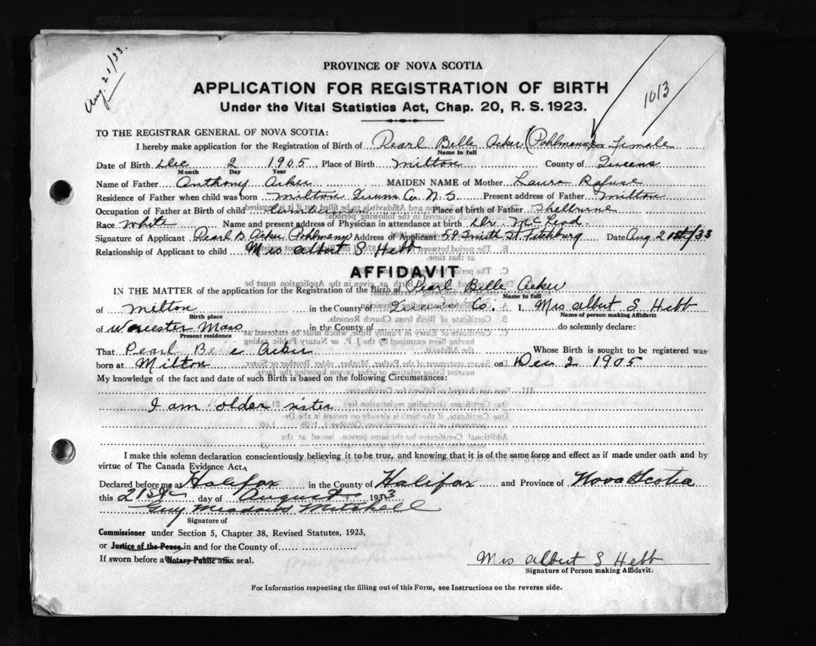 Aug. 21/33.
1013
PROVINCE OF NOVA SCOTIA
APPLICATION FOR REGISTRATION OF BIRTH
Under the Vital Statistics Act, Chap. 20, R. S. 1923.
TO THE REGISTRAR GENERAL OF NOVA SCOTIA:
I hereby make application for the Registration of Birth of Pearl Belle Acker (Pohlman) Sex Female
Name in full
Date of Birth Dec 2 1905 Place of Birth Milton County of Queens
Month Day Year
Name of Father Anthony Acker MAIDEN NAME of Mother Laura Rafuse
Residence of Father when child was born Milton Queens Co. N. S. Present address of Father Milton
Occupation of Father at Birth of child Lumberman Place of Birth of Father Shelburne
Race White Name and present address of Physician at attendance at birth Dr. McLeod
Signature of Applicant Pearl B. Acker (Pohlman) Address of Applicant 59 Smith St. Fitchburg Date Aug 21st/33
Relationship of Applicant to child Mrs Albert S Hebb
AFFIDAVIT
IN THE MATTER of the application for the Registration of the Birth of Pearl Belle Acker
Name in full
of Milton in the County of Queens Co. I, Mrs Albert S Hebb
Birth place Name of person making Affidavit
of Worcester Mass in the County of do solemnly declare:
Present residence
That Pearl Be e Acker Whose Birth is sought to be registered was
born at Milton on Dec 2 1905
My knowledge of the fact and date of such Birth is based on the following Circumstances:
I am older sister
I make this solemn declaration conscientiously believing it to be true, and knowing that it is of the same force and effect as if made under oath and by
virtue of The Canada Evidence Act,
Declared before me at Halifax in the County of Halifax and Province of Nova Scotia
this 21st day of August 1933
Guy Meadows Mitchell
Signature of
Commissioner under Section 5, Chapter 38, Revised Statutes, 1923,
or Justice of the Peace in and for the County of
If sworn before a Notary Public affix seal.
Mrs Albert S Hebb
Signature of Person making Affidavit.
For Information respecting the filling out of this Form, see Instructions on the reverse side.